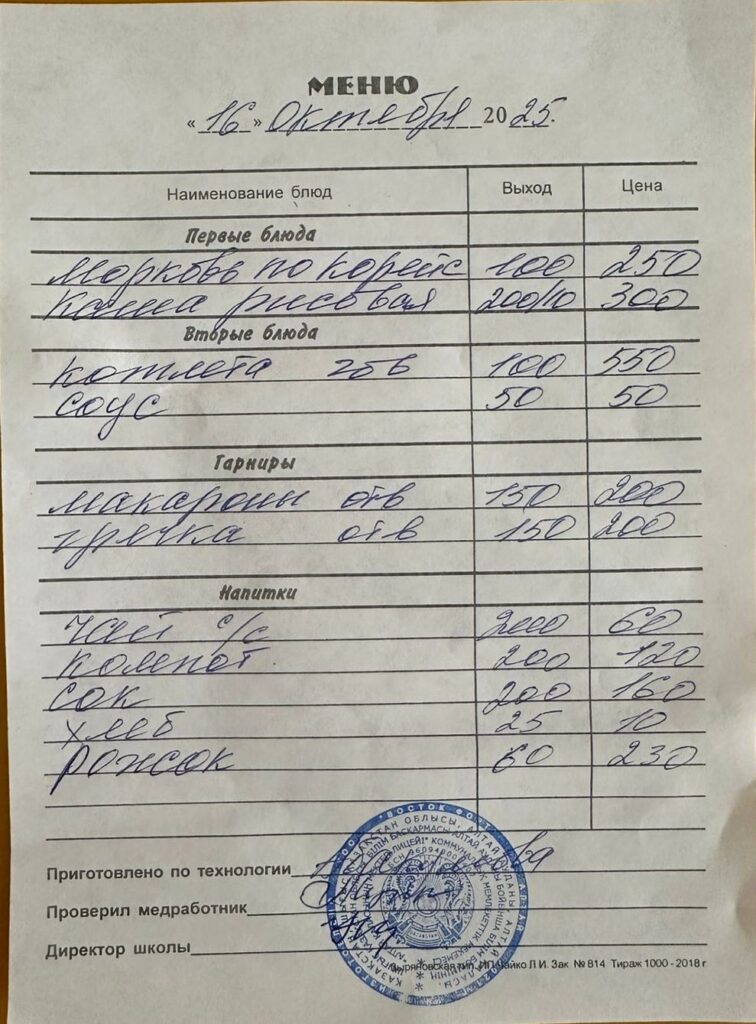 МЕНЮ
«16» Октября 2025.
Наименование блюд Выход Цена
Первые блюда
Морковь по корейс 100 250
Каша рисовая 200/10 300
Вторые блюда
Котлета гов 100 550
Соус 50 50
Гарниры
Макароны отв 150 200
гречка отв 150 200
Напитки
Чай с/с 200 60
Компот 200 120
Сок 200 160
хлеб 25 10
Рожок 60 230
Приготовлено по технологии
Проверил медработник
Директор школы
Зыряновская тип. ИП Чайко Л.И. Зак. № 814 Тираж 1000 - 2018 г